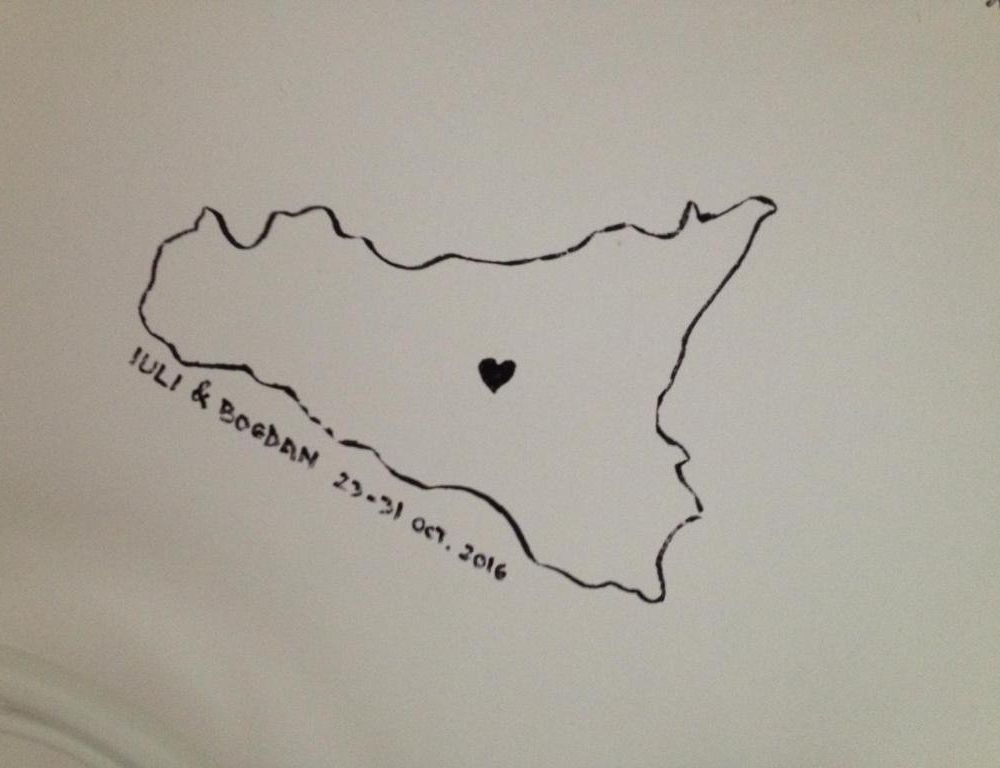 IULI & BOGDAN 23-31 OCT. 2016